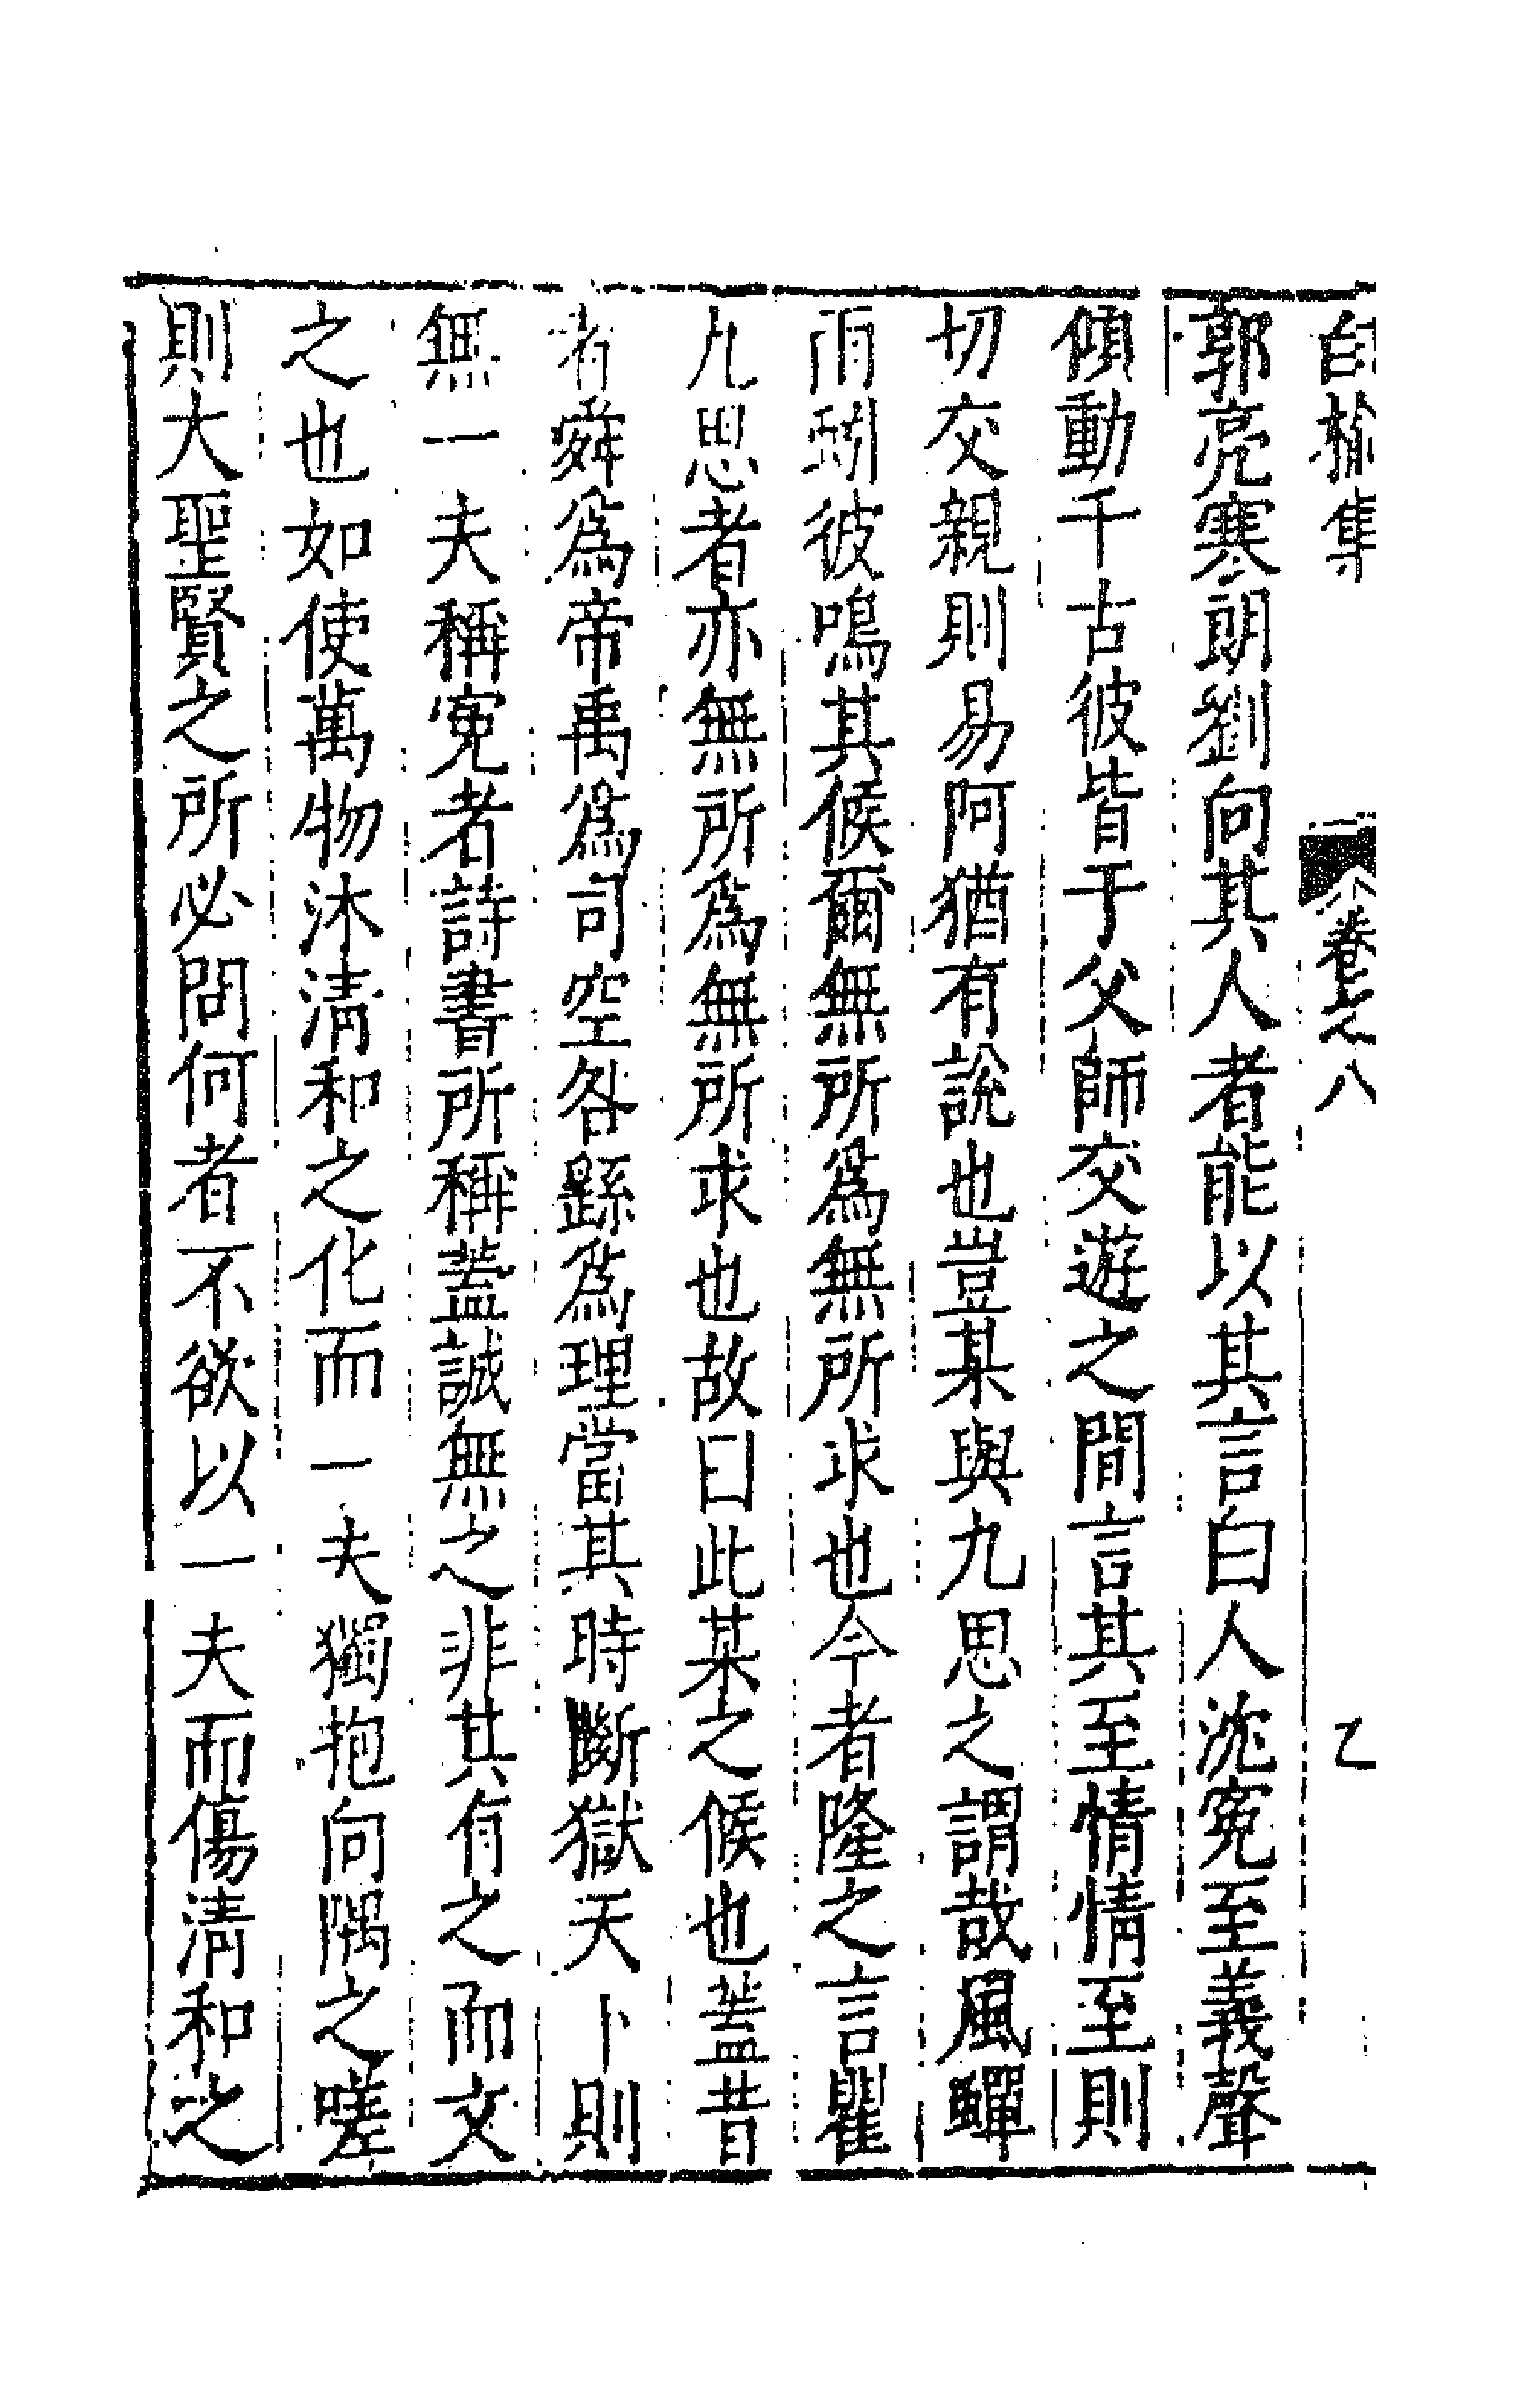 白榆集 卷之八 乙
郭亮寒朗劉向其人者能以其言白人沈寃至義聲
傾動千古彼皆于父師交遊之間言其至情情至則
切交親則易阿猶有說也豈某與九思之謂哉風蟬
雨蛩彼鳴其候爾無所爲無所求也今者隆之言瞿
九思者亦無所爲無所求也故曰此某之候也蓋昔
者舜爲帝禹爲司空咎繇爲理當其時斷獄天下則
無一夫稱寃者詩書所稱蓋誠無之非其有之而文
之也如使萬物沐清和之化而一夫獨抱向隅之嗟
則大聖賢之所必問何者不欲以一夫而傷清和之